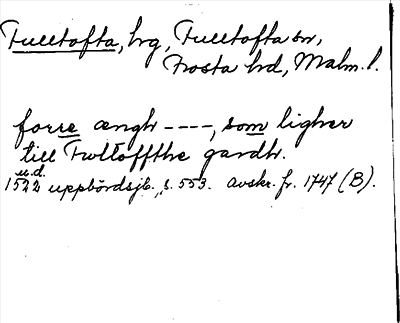 Fulltofta, hg, Fulltofta sn,
Frosta hd, Malm. l.
forre ængh ----, som ligher
till Fwltoffthe gardh.
u.d.
1522 uppbördsjb. s. 553. Avskr. fr. 1747 (B).